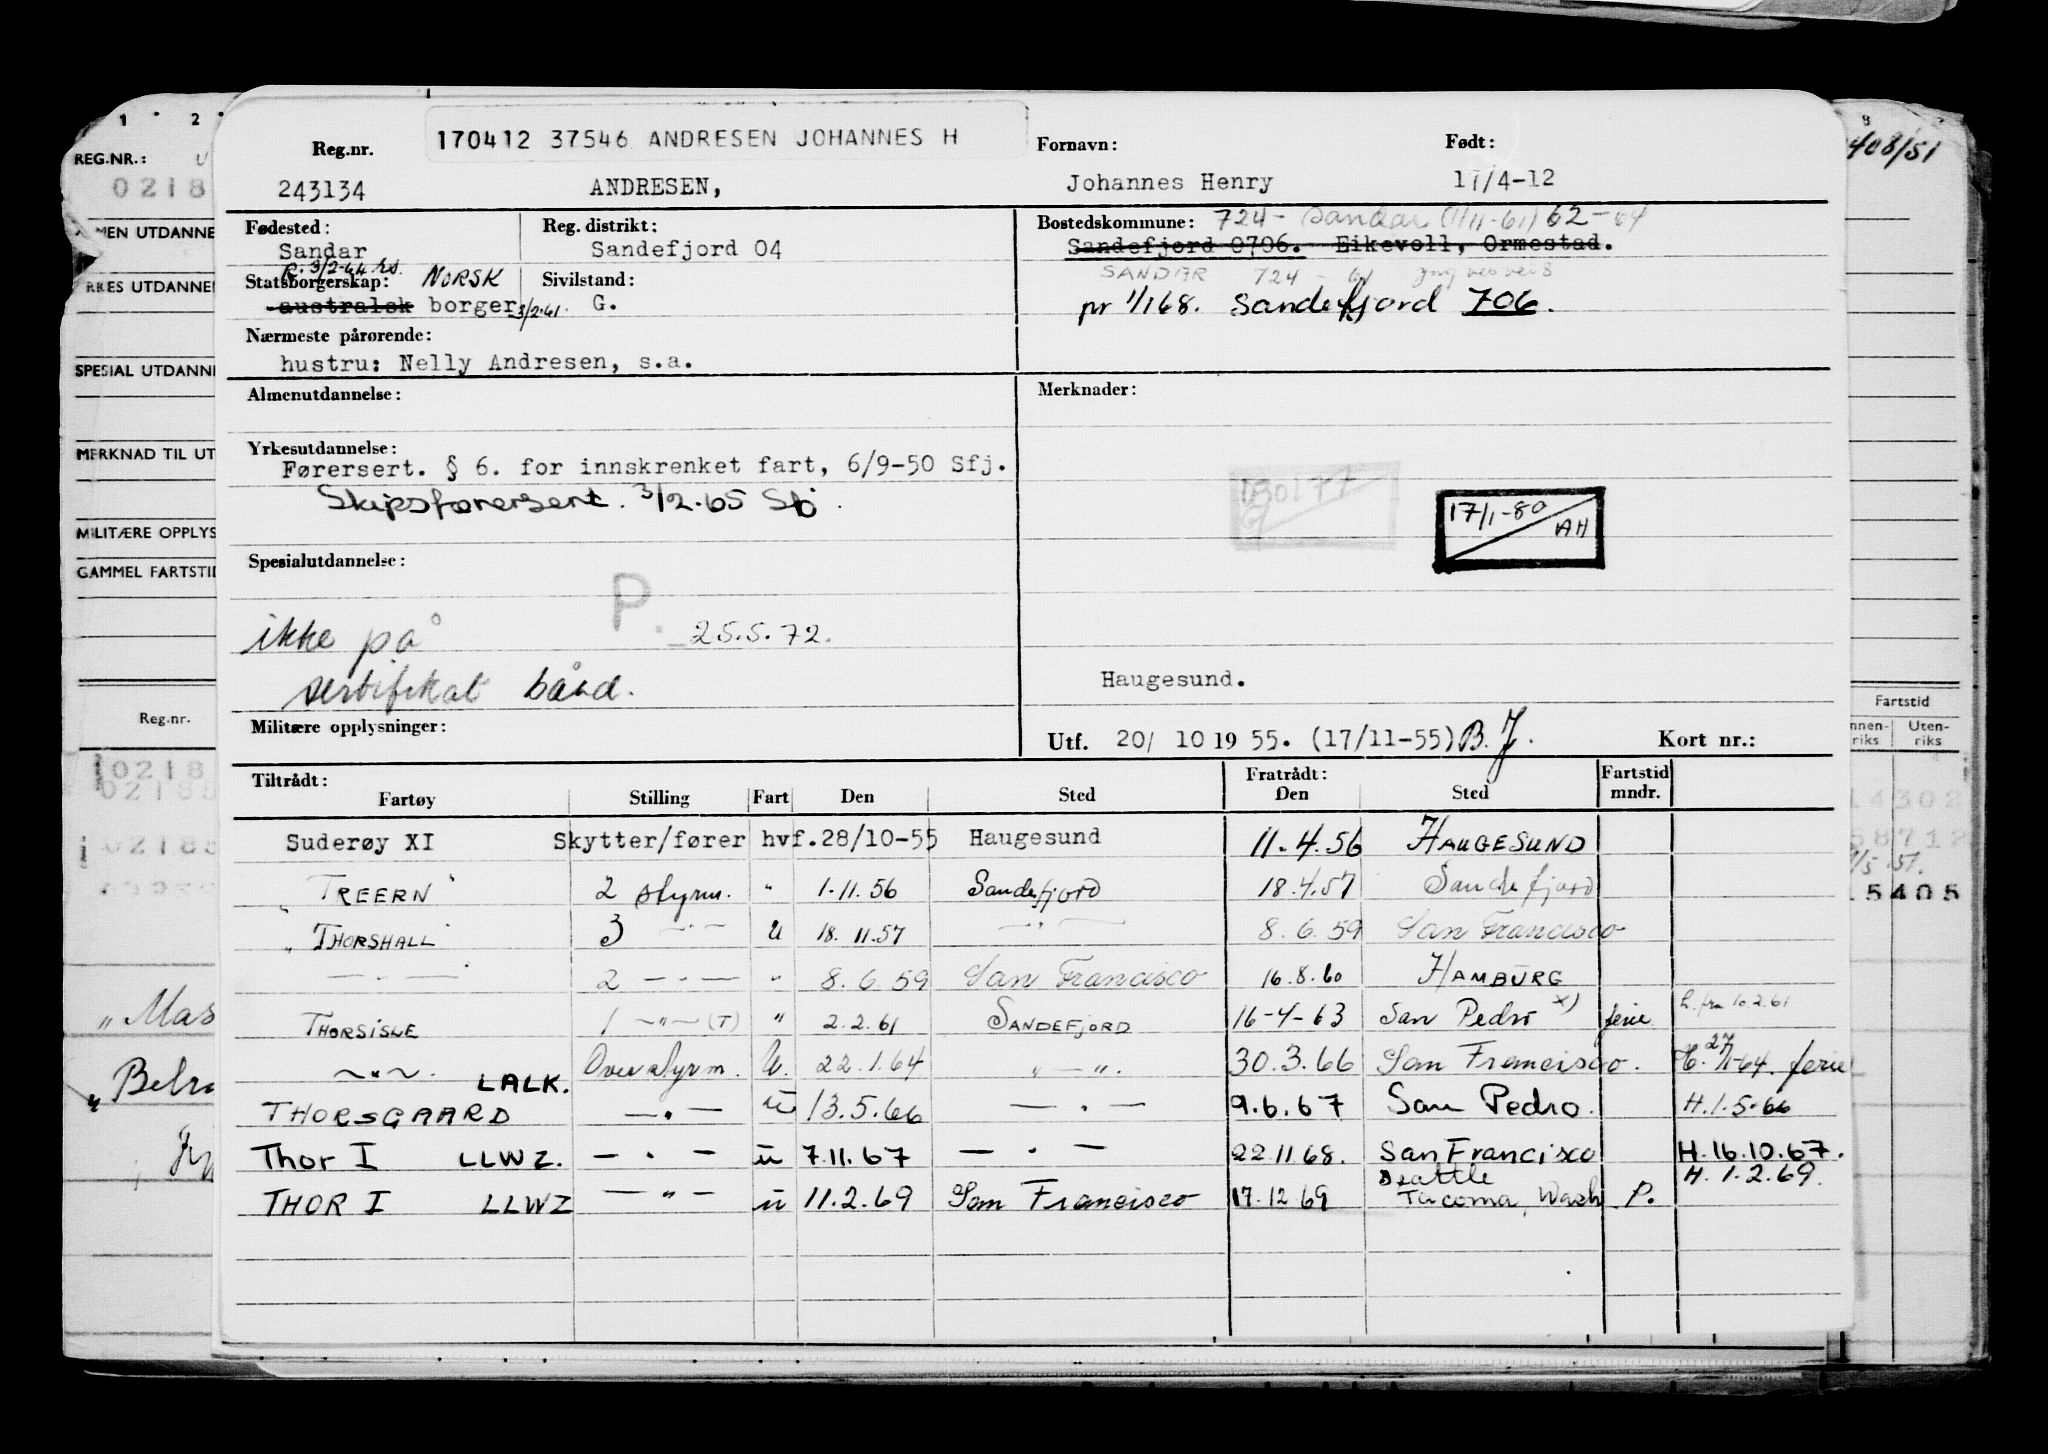 170412 37546 ANDRESEN JOHANNES H
Reg.nr. Fornavn: Født:
243134 ANDRESEN, Johannes Henry 17/4-12
Fødested: Reg. distrikt: Bostedskommune: 724- Sandar (1/11-61) 62-64
Sandar Sandefjord 04 Sandefjord 0706. Eikevoll, Ormestad.
R. 3/2-64 hs. SANDAR 724 - 61
Statsborgerskap: NORSK Sivilstand:
australsk borger 3/2-61 G. pr 1/1 68. Sandefjord 706.
Nærmeste pårørende:
hustru: Nelly Andresen, s.a.
Almenutdannelse: Merknader:
Yrkesutdannelse:
Førersert. § 6. for innskrenket fart, 6/9-50 Sfj.
Skipsførersert. 3/2.65 Sfj.
17/1-80 AH
Spesialutdannelse:
P.
ikke på 25.5.72.
sertifikat bånd. Haugesund.
Militære opplysninger: Utf. 20/ 10 19 55. (17/11-55) B.J. Kort nr.:
Tiltrådt: Fratrådt: Fartstid
Fartøy Stilling Fart Den Sted Den Sted mndr.
Suderøy XI Skytter/fører hvf. 28/10-55 Haugesund 11.4.56 HAUGESUND
" TREERN " 2 styrm. " 1.11.56 Sandefjord 18.4.57 Sandefjord
" THORSHALL " 3 —"— U 18.11.57 —"— 8.6.59 San Francisco
—"— 2 —"— " 8.6.59 San Francisco 16.8.60 HAMBURG
THORSISLE 1 —"— (T) " 2.2.61 SANDEFJORD 16-4-63 San Pedro x) ferie h. fra 10.2.61
—"— Overstyrm. U. 22.1.64 —"— 30.3.66 San Francisco. H. 27/1-64. ferie
THORSGAARD LALK. —"— u 13.5.66 —"— 9.6.67 San Pedro. H.1.5-66
Thor I LLWZ. —"— u 7.11.67 —"— 22.11.68. San Francisco H.16.10.67.
THOR I LLWZ —"— u 11.2.69 San Francisco 17.12.69 Seattle Tacoma, Wash P. H. 1.2.69.
1 2
REG.NR.:
0218
MEN UTDANNE
RKES UTDANNE
SPESIAL UTDANNE
MERKNAD TIL UT
MILITÆRE OPPLYS
GAMMEL FARTSTID
Reg.nr.
0218
02188
02188
„Mas
„Belra
408/51
Fartstid
nnen- Uten-
riks riks
14302
58712
15405